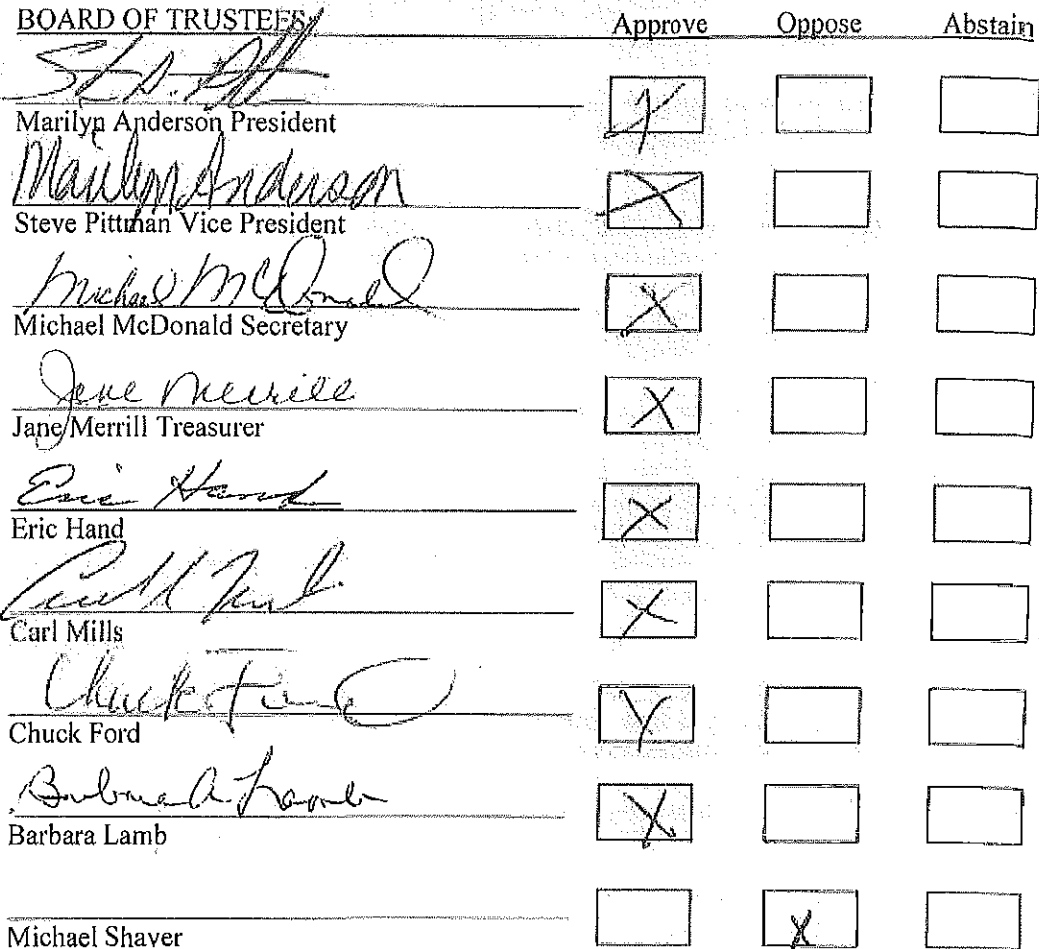 BOARD OF TRUSTEES Approve Oppose Abstain
X
Marilyn Anderson President
Marilyn Anderson X
Steve Pittman Vice President
Michael McDonald X
Michael McDonald Secretary
Jane Merrill X
Jane Merrill Treasurer
Eric Hand X
Eric Hand
X
Carl Mills
Chuck Ford X
Chuck Ford
Barbara A. Lamb X
Barbara Lamb
X
Michael Shaver